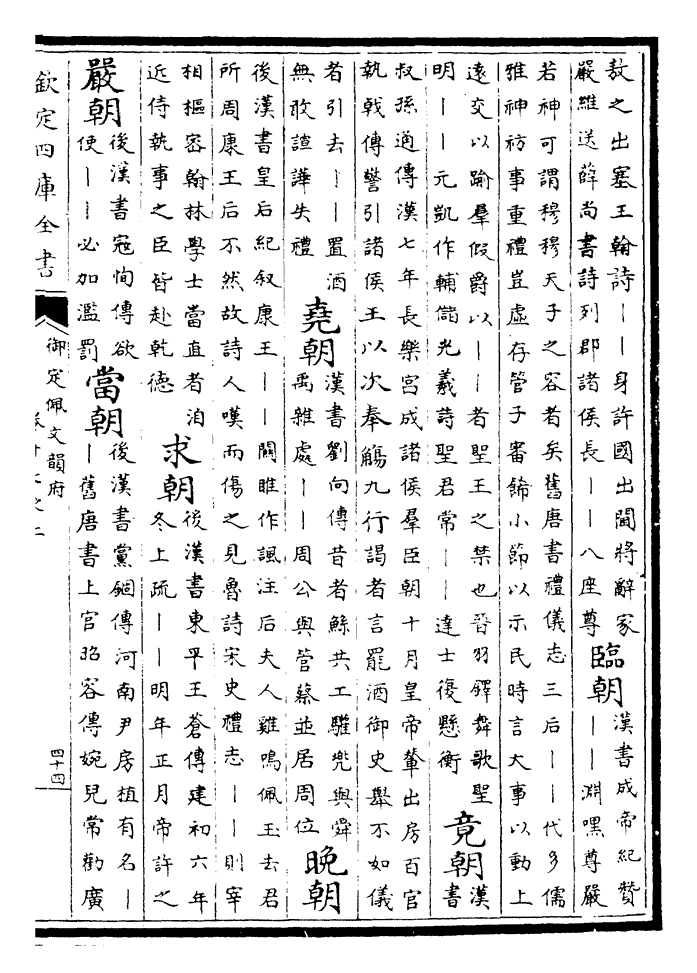 敖之出塞王翰詩丨丨身許國出閫將辭家
嚴維送薛尚書詩列郡諸侯長丨丨八座尊
臨朝
漢書成帝紀贊
丨丨淵嘿尊嚴
若神可謂穆穆天子之容者矣舊唐書禮儀志三后丨丨代多儒
雅神祊事重禮豈虛存管子審飾小節以示民時言大事以動上
遠交以踰羣假爵以丨丨者聖王之禁也晉羽鐸舞歌聖
明丨丨元凱作輔儲光羲詩聖君常丨丨達士復懸衡
竟朝
漢
書
叔孫通傳漢七年長樂宮成諸侯羣臣朝十月皇帝輦出房百官
執戟傳警引諸侯王以次奉觴九行謁者言罷酒御史舉不如儀
者引去丨丨置酒
無敢諠譁失禮
堯朝
漢書劉向傳昔者鯀共工驩兜與舜
禹雜處丨丨周公與管蔡並居周位
晚朝
後漢書皇后紀叙康王丨丨關雎作諷注后夫人雞鳴佩玉去君
所周康王后不然故詩人嘆而傷之見魯詩宋史禮志丨丨則宰
相樞密翰林學士當直者洎
近侍執事之臣皆赴乾德
求朝
後漢書東平王蒼傳建初六年
冬上疏丨丨明年正月帝許之
嚴朝
後漢書寇恂傳欲
使丨丨必加濫罰
當朝
後漢書黨錮傳河南尹房植有名丨
丨舊唐書上官昭容傳婉兒常勸廣
欽定四庫全書
御定佩文韻府
卷十七之二
四十四